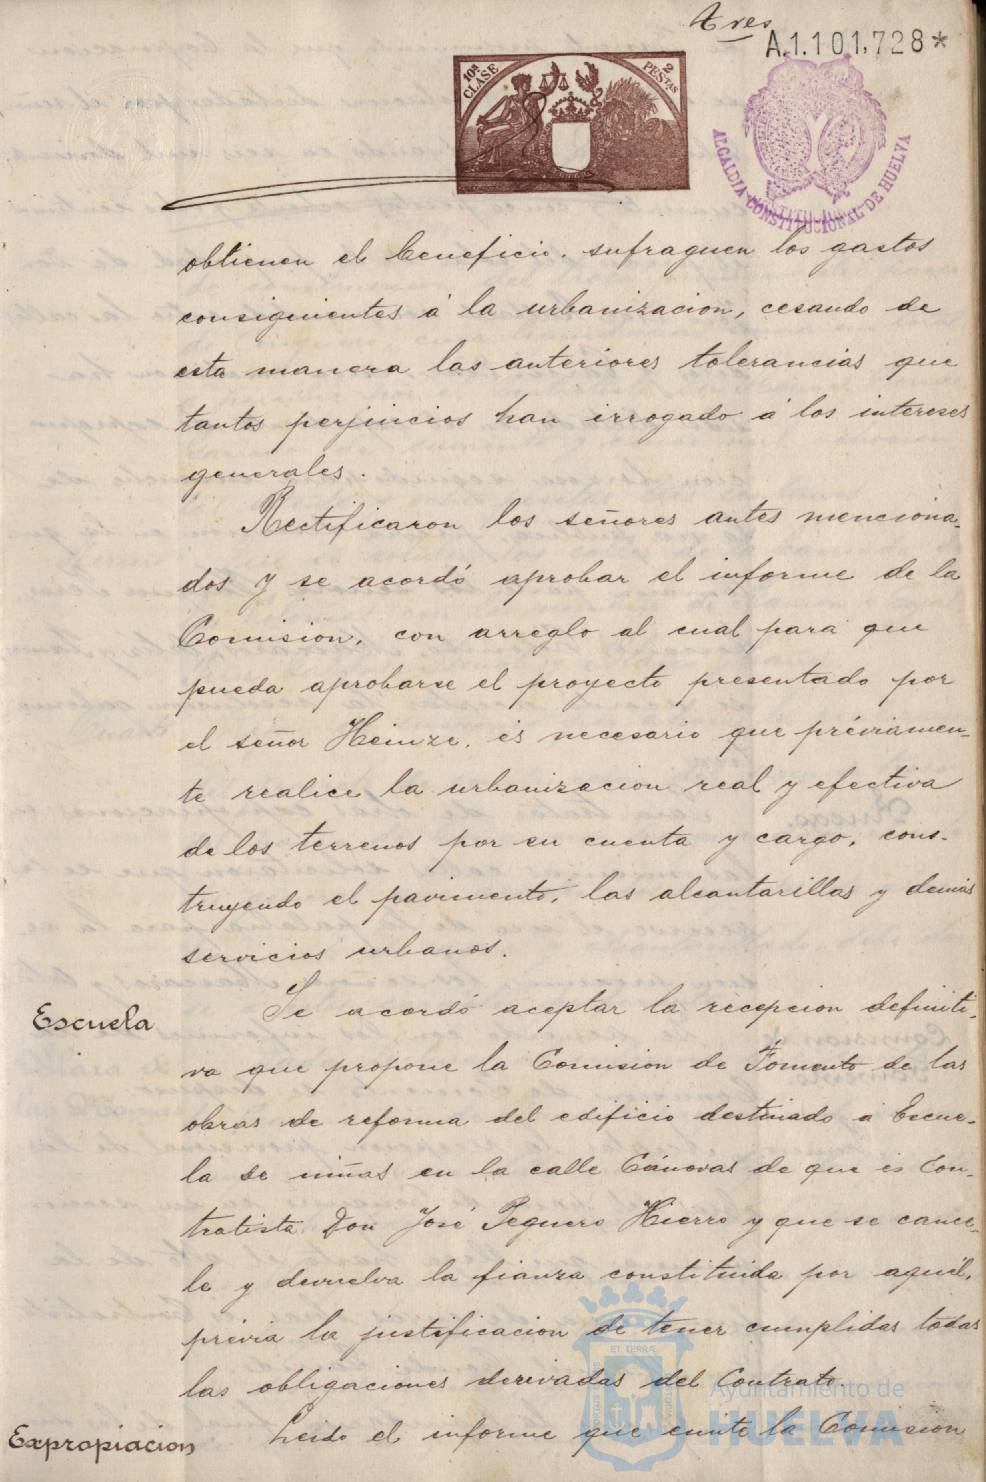 Tres
A.1.101,728*
10ª CLASE
2 PESTAS
ALCALDIA CONSTITUCIONAL DE HUELVA
obtienen el beneficio, sufraguen los gastos
consiguientes á la urbanizacion, cesando de
esta manera las anteriores tolerancias que
tantos perjuicios han irrogado á los intereses
generales.
Rectificaron los señores antes menciona-
dos y se acordó aprobar el informe de la
Comision, con arreglo al cual para que
pueda aprobarse el proyecto presentado por
el señor Heinze, es necesario que préviamen-
te realice la urbanizacion real y efectiva
de los terrenos por su cuenta y cargo, cons-
truyendo el pavimento, las alcantarillas y demás
servicios urbanos.
Escuela
Se acordó aceptar la recepcion definiti-
va que propone la Comision de Fomento de las
obras de reforma del edificio destinado á Escue-
la de niñas en la calle Cánovas de que es Con-
tratista Don José Peguero Hierro y que se cance-
le y devuelva la fianza constituida por aquél,
prévia la justificacion de tener cumplidas todas
las obligaciones derivadas del Contrato.
Expropiacion
Leido el informe que emite la Comision
ET TERRA
Ayuntamiento de
HUELVA